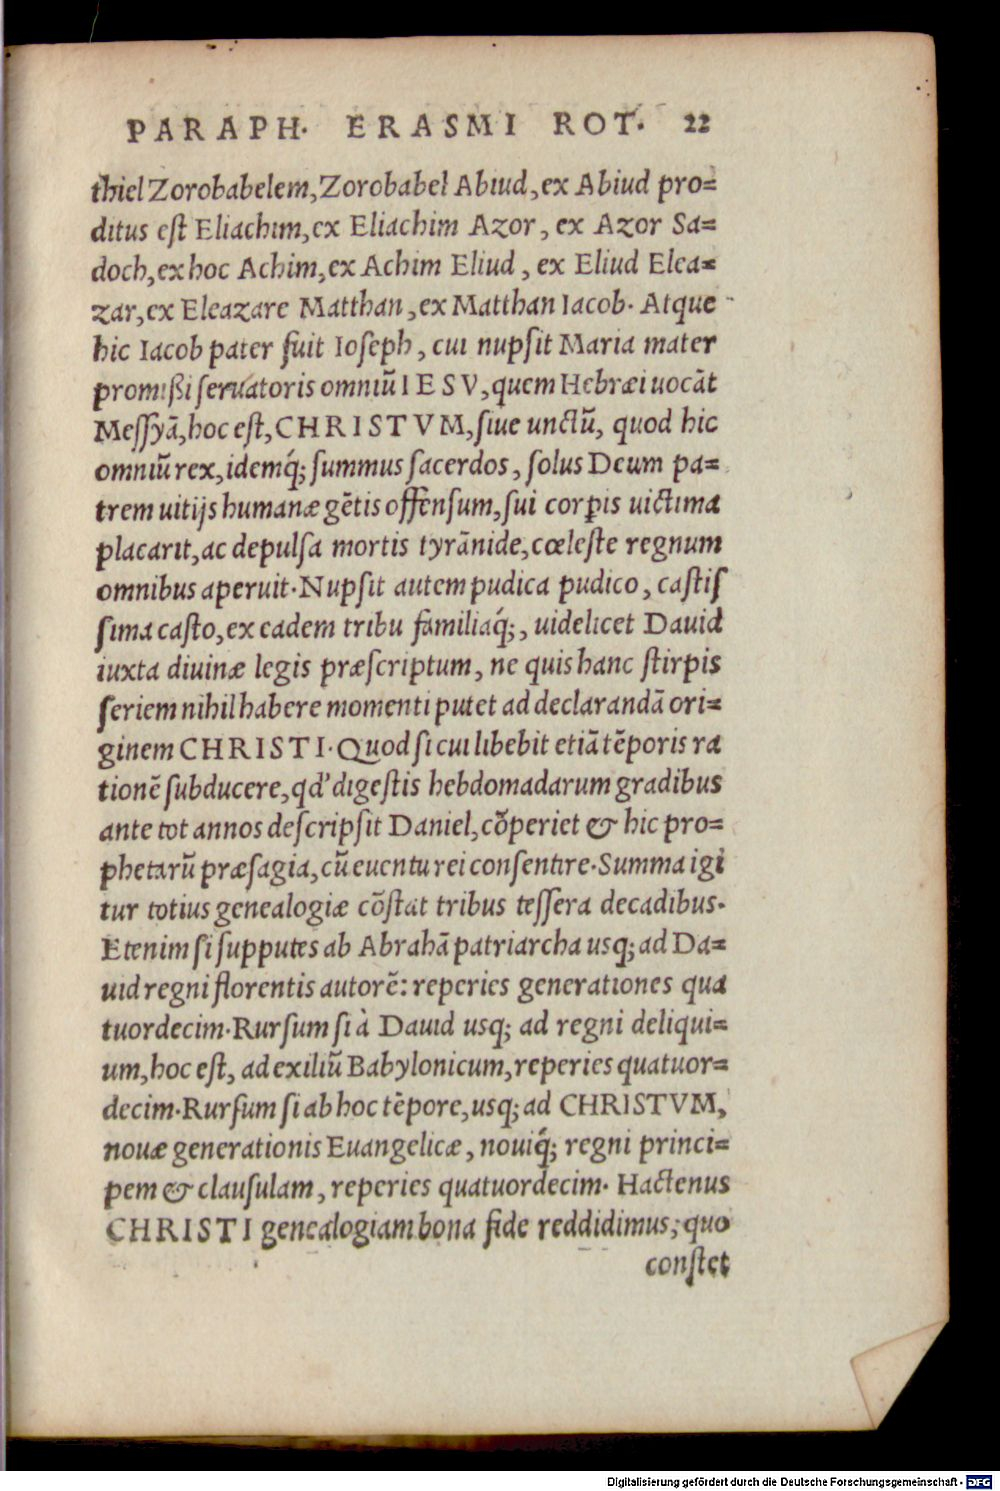 PARAPH. ERASMI ROT. 22
thiel Zorobabelem, Zorobabel Abiud, ex Abiud pro=
ditus eſt Eliachim, ex Eliachim Azor, ex Azor Sa=
doch, ex hoc Achim, ex Achim Eliud, ex Eliud Elea=
zar, ex Eleazare Matthan, ex Matthan Iacob. Atque
hic Iacob pater fuit Ioſeph, cui nupſit Maria mater
promißi ſeruatoris omniũ IESV, quem Hebræi uocãt
Meſſyã, hoc eſt, CHRISTVM, ſiue unctũ, quod hic
omniũ rex, idemq́; ſummus ſacerdos, ſolus Deum pa=
trem uitijs humanæ gẽtis offenſum, ſui corꝑis uictima
placarit, ac depulſa mortis tyrãnide, cœleſte regnum
omnibus aperuit. Nupſit autem pudica pudico, caſtiſ
ſima caſto, ex eadem tribu familiaq́;, uidelicet Dauid
iuxta diuinæ legis præſcriptum, ne quis hanc ſtirpis
ſeriem nihil habere momenti putet ad declarandã ori=
ginem CHRISTI. Quod ſi cui libebit etiã tẽporis ra
tionẽ ſubducere, qd' digeſtis hebdomadarum gradibus
ante tot annos deſcripſit Daniel, cõperiet & hic pro=
phetarũ præſagia, cũ euentu rei conſentire. Summa igi
tur totius genealogiæ cõſtat tribus teſſera decadibus.
Etenim ſi ſupputes ab Abrahã patriarcha usq; ad Da=
uid regni florentis autorẽ: reperies generationes qua
tuordecim. Rurſum ſi à Dauid usq; ad regni deliqui=
um, hoc eſt, ad exiliũ Babylonicum, reperies quatuor=
decim. Rurſum ſi ab hoc tẽpore, usq; ad CHRISTVM,
nouæ generationis Euangelicæ, nouiq́; regni princi=
pem & clauſulam, reperies quatuordecim. Hactenus
CHRISTI genealogiam bona fide reddidimus, quo
conſtet
Digitalisierung gefördert durch die Deutsche Forschungsgemeinschaft - DFG